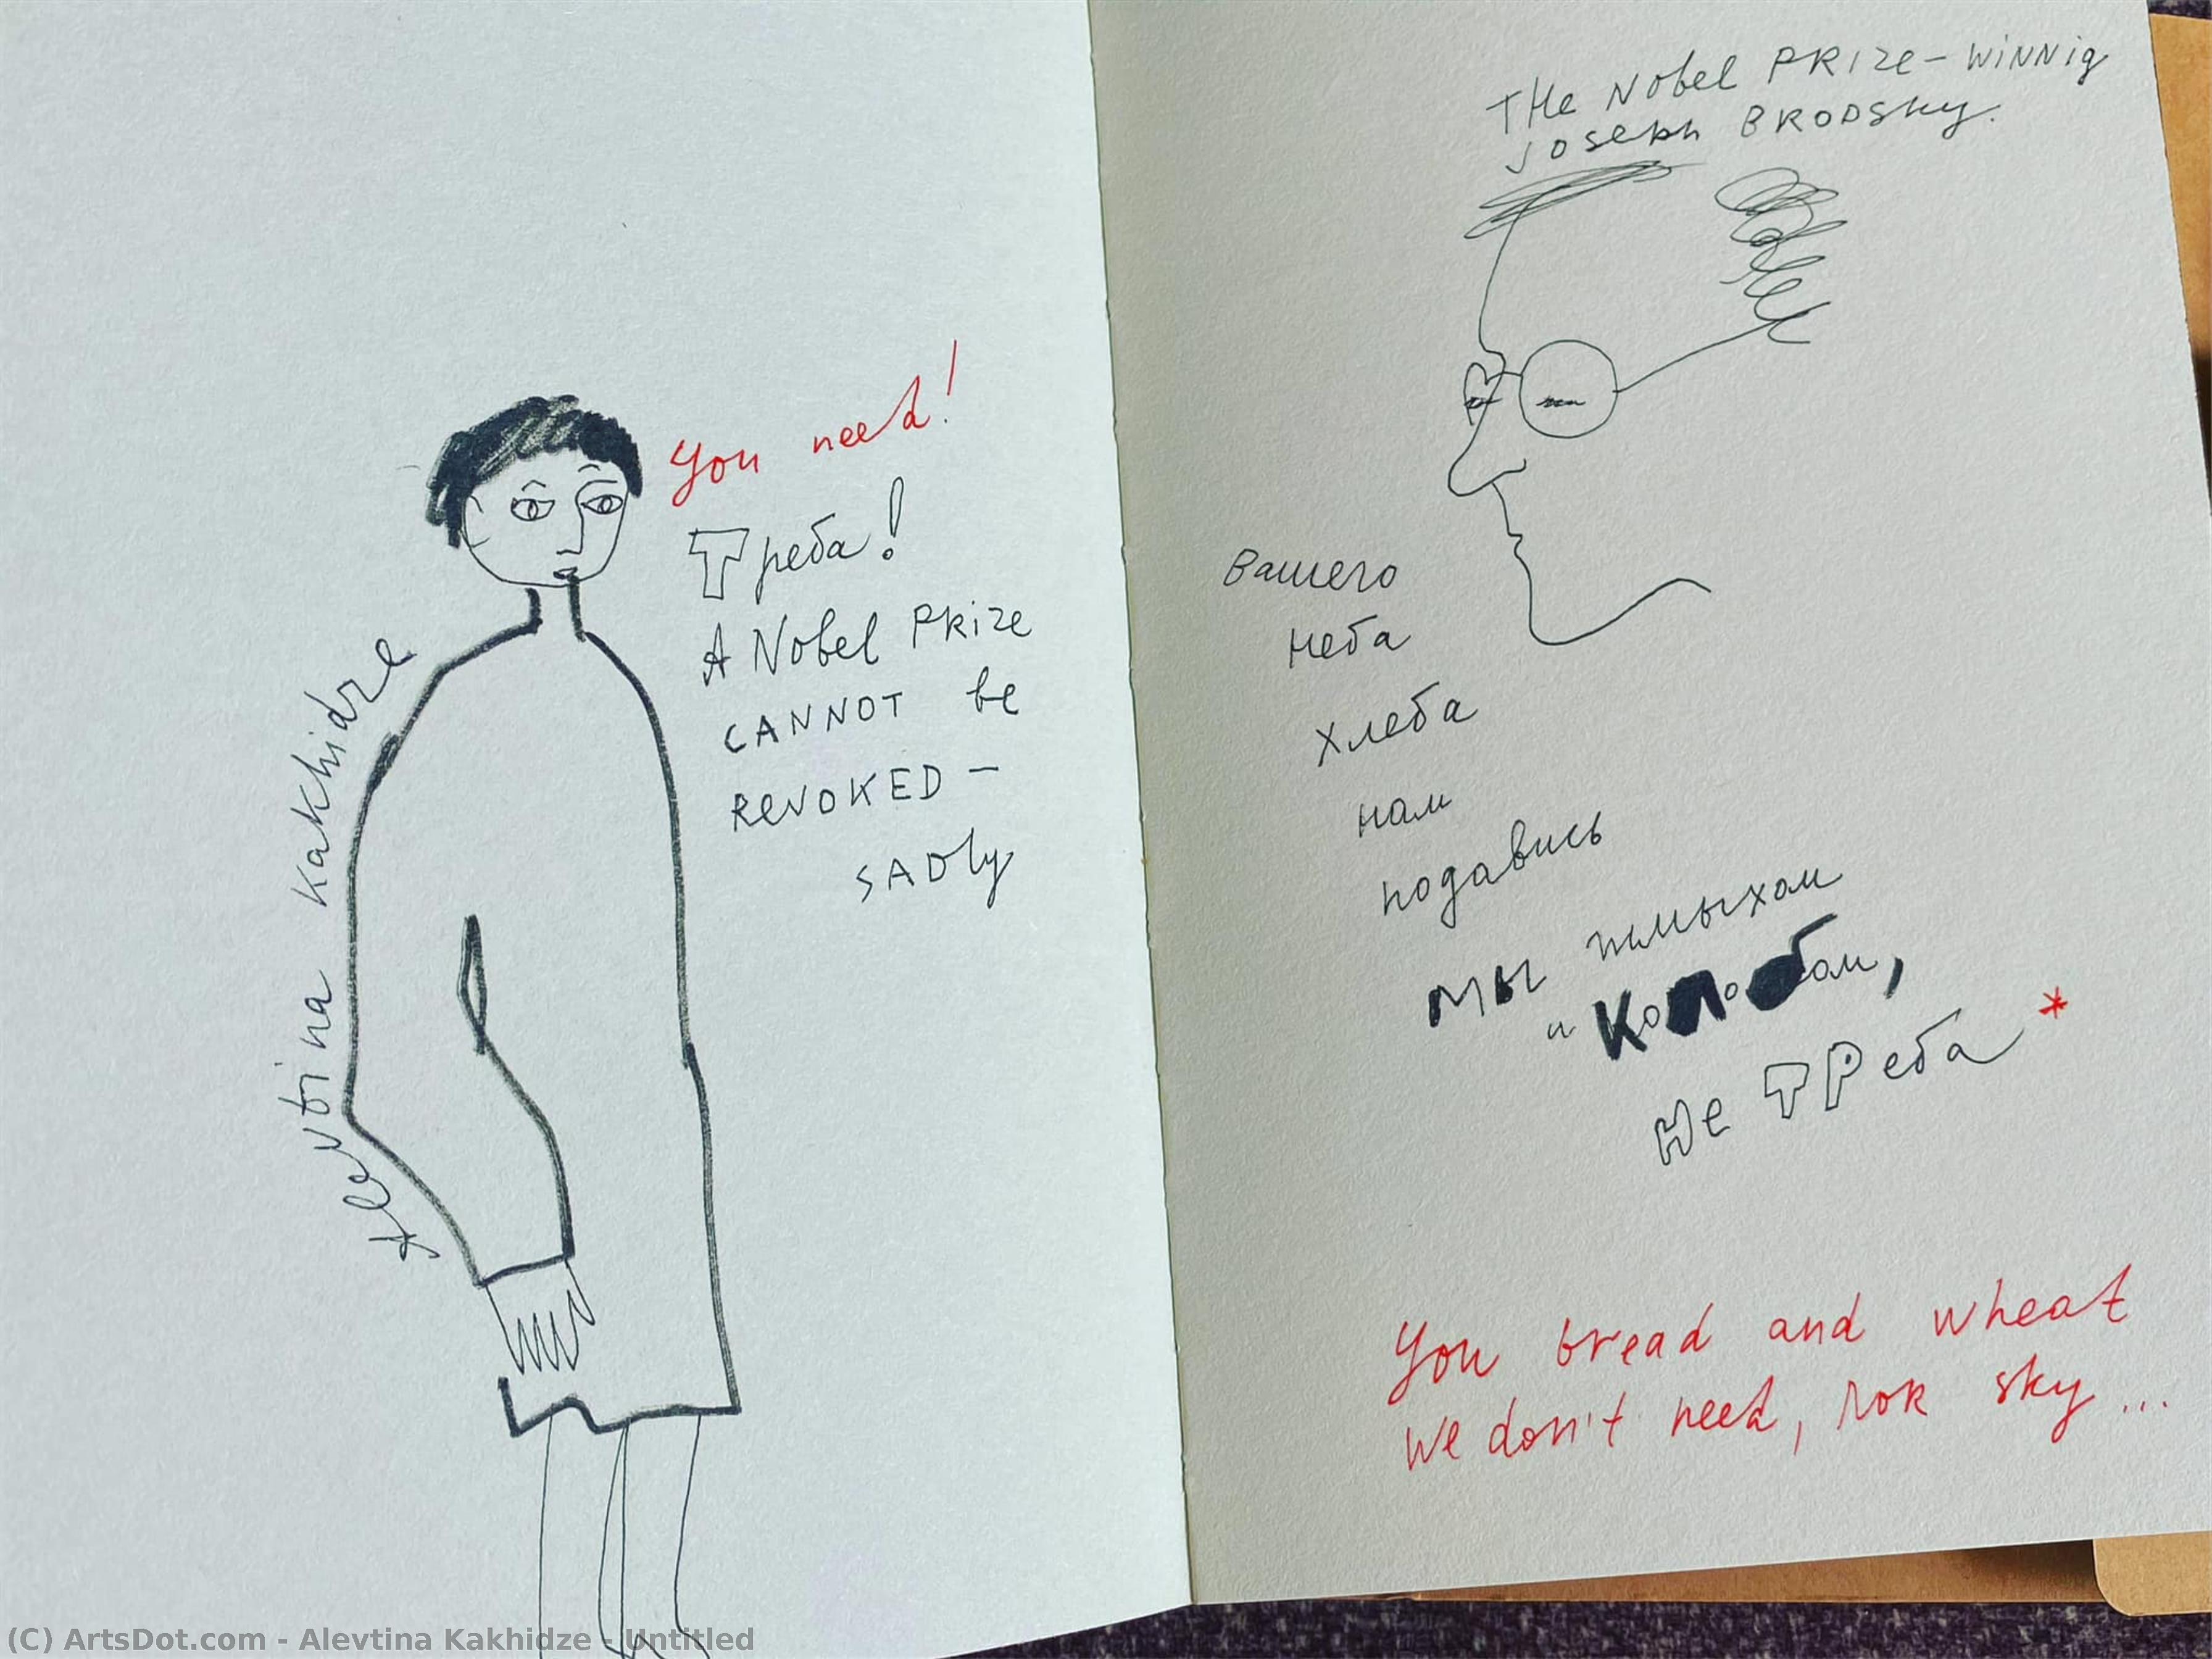 You need!
Треба!
A Nobel Prize
CANNOT be
REVOKED –
SADly
Alevtina Kakhidze
THe Nobel PRize-WiNNig
Joseph BRODSky.
Вашего
неба
хлеба
нам
подавись
мы жмыхом
и Колобом,
не ТРеба *
You bread and wheat
We don't need, NOR sky ...
(C) ArtsDot.com - Alevtina Kakhidze - Untitled